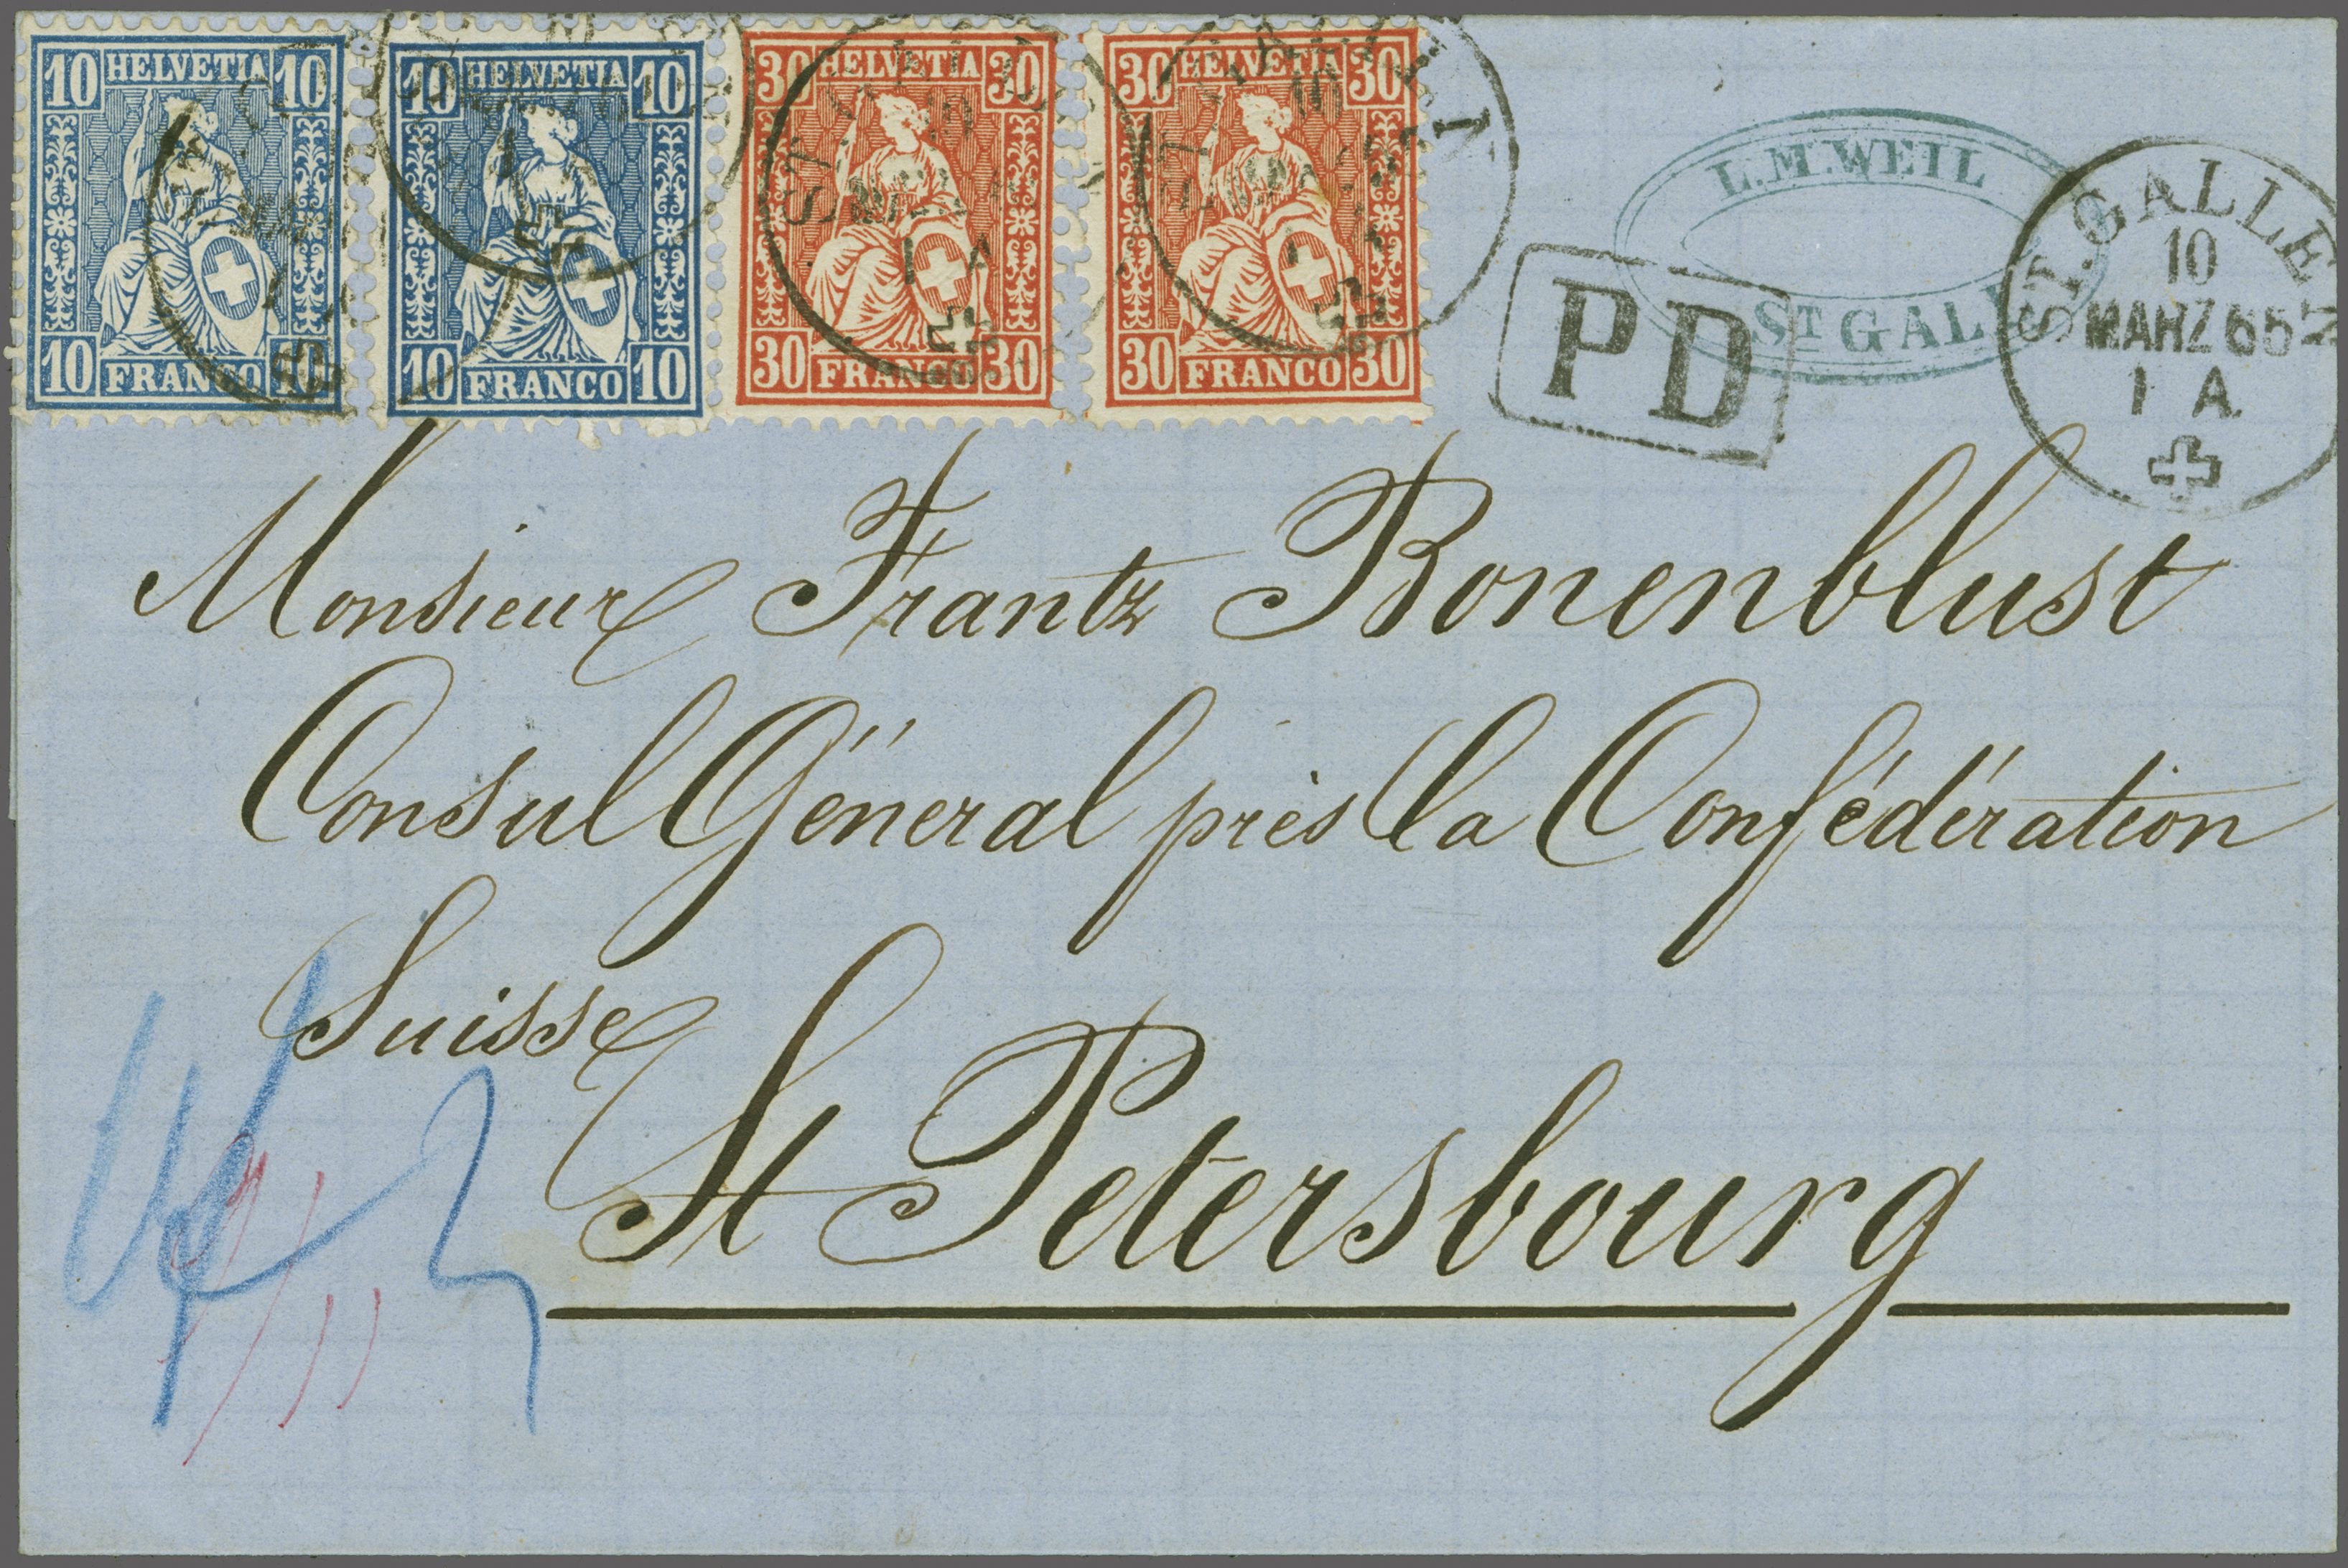 10 HELVETIA 10
10 FRANCO 10
10 HELVETIA 10
10 FRANCO 10
30 HELVETIA 30
30 FRANCO 30
30 HELVETIA 30
30 FRANCO 30
ST. GALLEN
10
L.M.WEIL
ST GALL
PD
ST. GALLEN
10
MÄRZ 65
1 A.
Monsieur Frantz Bonenblust
Consul Général près la Confédération
Suisse
St Petersbourg